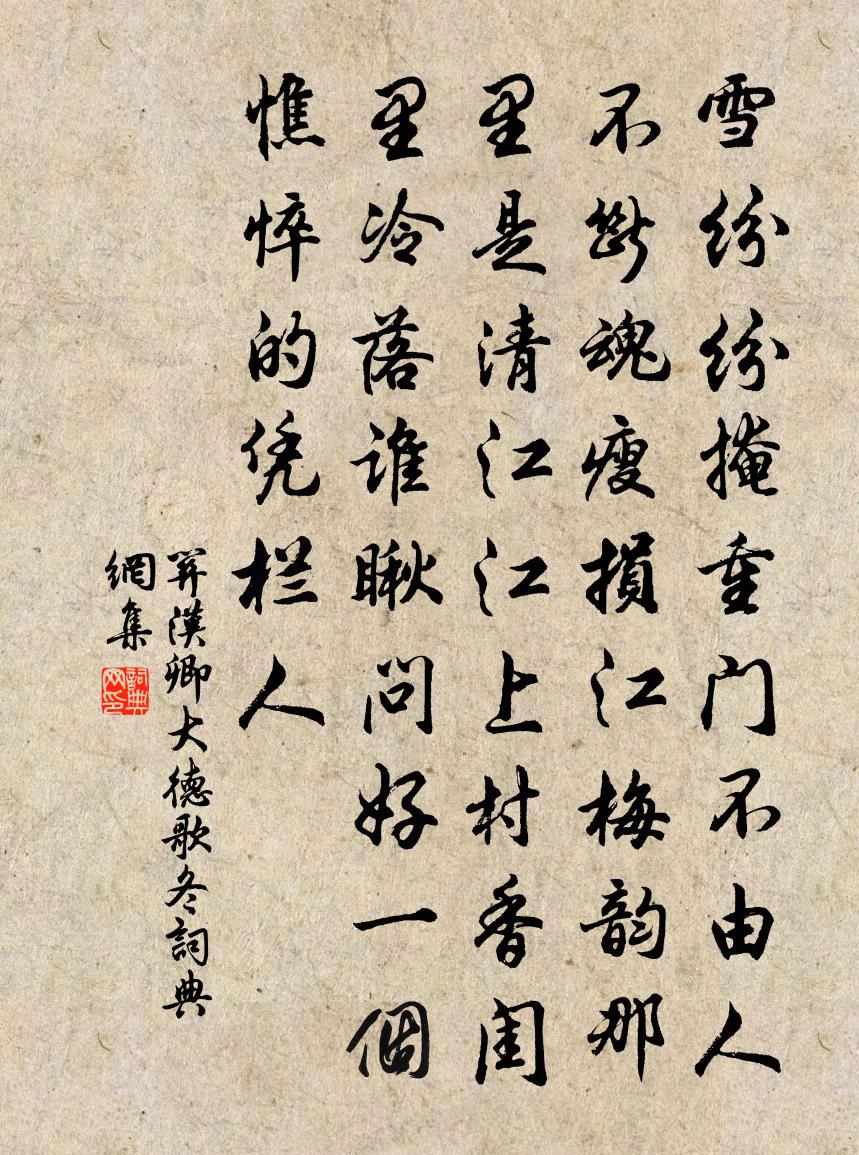 雪纷纷掩重门不由人
不断魂瘦損江梅韵那
里是清江江上村香闺
里冷落谁瞅问好一個
憔悴的凭栏人
関漢卿大德歌冬詞典
網集
詞典
网印